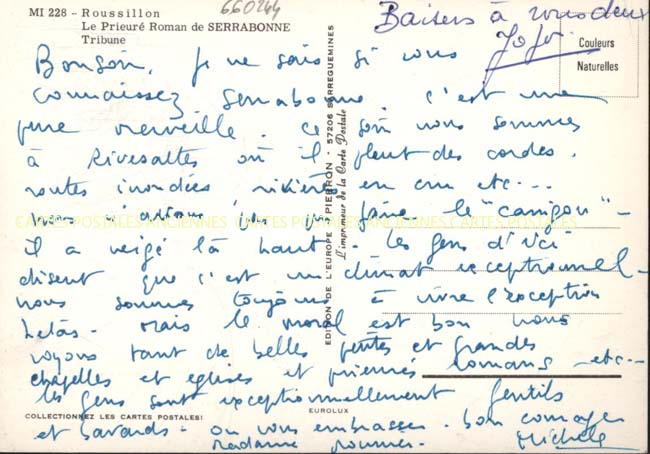 MI 228 - Roussillon
Le Prieuré Roman de SERRABONNE
Tribune
660244
Baisers à vous deux
Jojo
Couleurs
Naturelles
Bonsoir, je ne sais si vous
connaissez Serrabonne. c'est une
pure merveille. ce soir nous sommes
à Rivesaltes où il pleut des cordes.
routes inondées rivières en crue etc...
faire le "canigou" -
il a neigé là haut. les gens d'ici
disent que c'est un climat exceptionnel -
nous sommes toujours à vivre l'exception
hélas - mais le moral est bon nous
voyons tant de belles petites et grandes
chapelles et eglises et prieurés romans - etc...
les gens sont exceptionnellement gentils
et bavards. on vous embrasse. bon courage
Michèle
EDITION DE L'EUROPE - PIERRON - 57206 SARREGUEMINES
L'imprimeur de la Carte Postale
CARTES POSTALES ANCIENNES CARTES POSTALES ANCIENNES CARTES POSTALES
COLLECTIONNEZ LES CARTES POSTALES!
EUROLUX